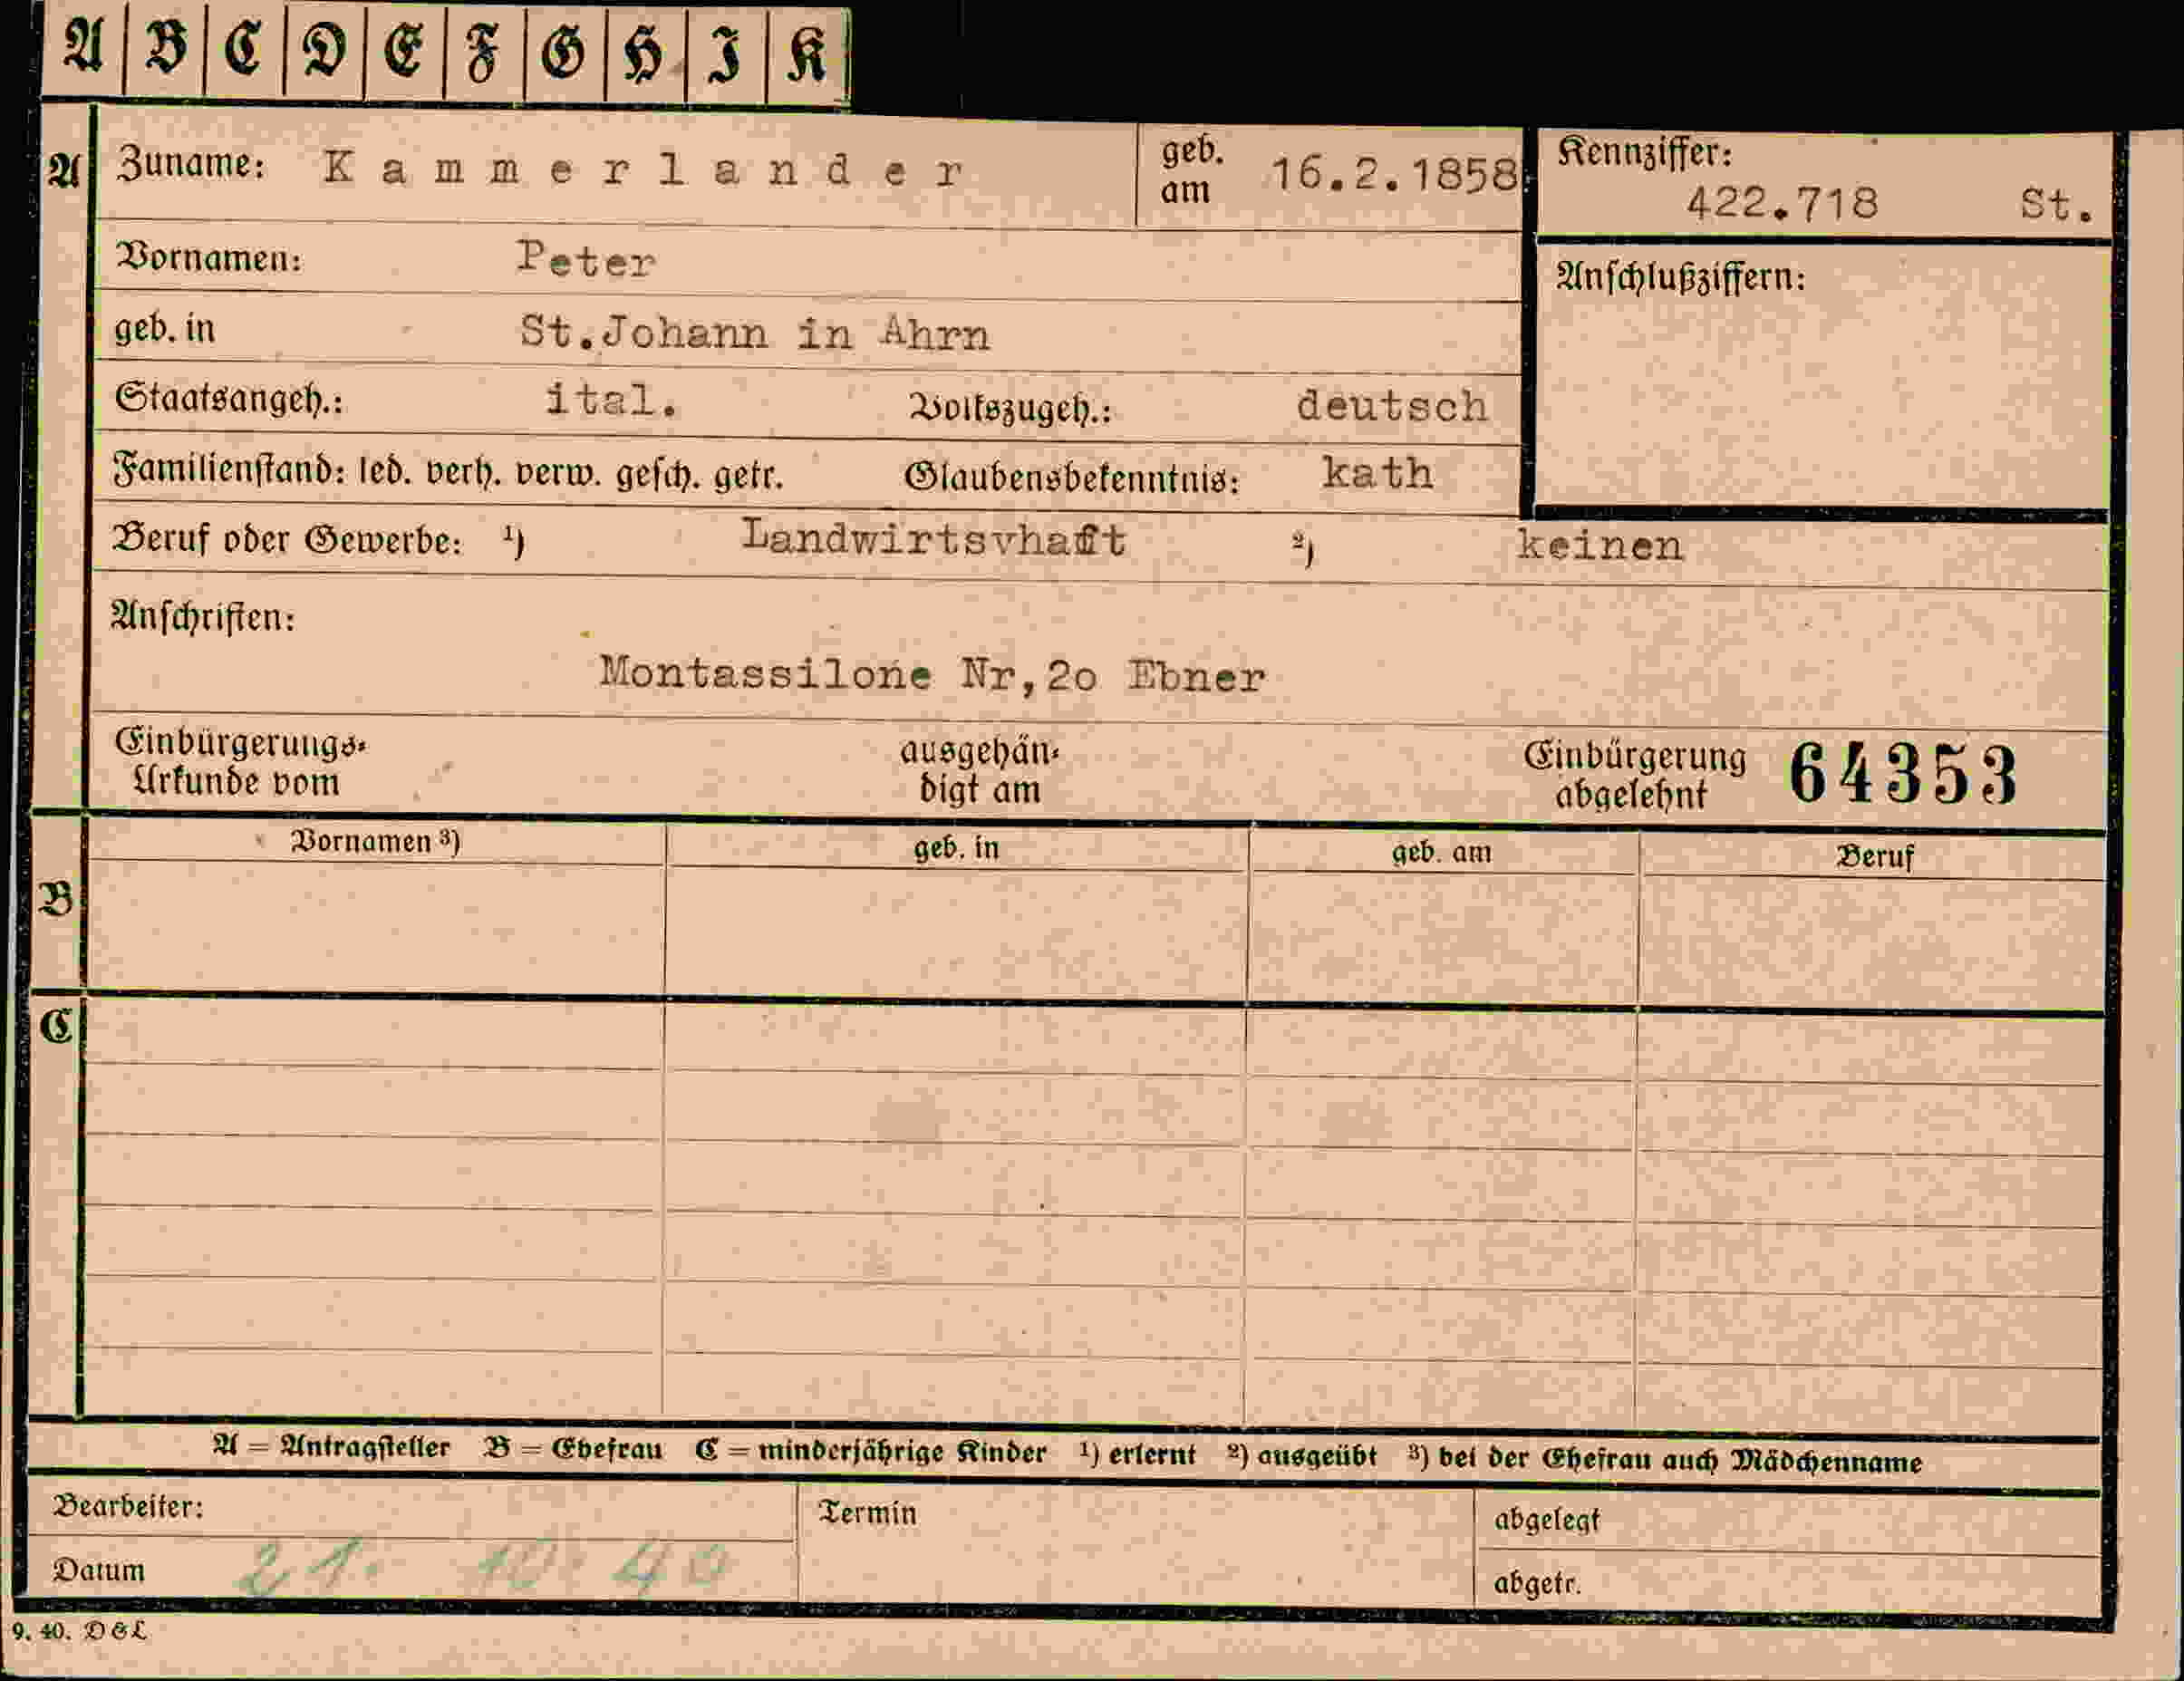 A B C D E F G H I K
A Zuname: Kammerlander geb. am 16.2.1858 Kennziffer: 422.718 St.
Vornamen: Peter Anschlußziffern:
geb. in St.Johann in Ahrn
Staatsangeh.: ital. Volkszugeh.: deutsch
Familienstand: led. verh. verw. gesch. getr. Glaubensbekenntnis: kath
Beruf oder Gewerbe: ¹) Landwirtsvhafft ²) keinen
Anschriften:
Montassilone Nr,2o Ebner
Einbürgerungs- ausgehän- Einbürgerung 64353
Urkunde vom digt am abgelehnt
Vornamen ³) geb. in geb. am Beruf
B
C
A = Antragsteller B = Ehefrau C = minderjährige Kinder ¹) erlernt ²) ausgeübt ³) bei der Ehefrau auch Mädchenname
Bearbeiter: Termin abgelegt
Datum 21. 10. 40 abgetr.
9. 40. D&L